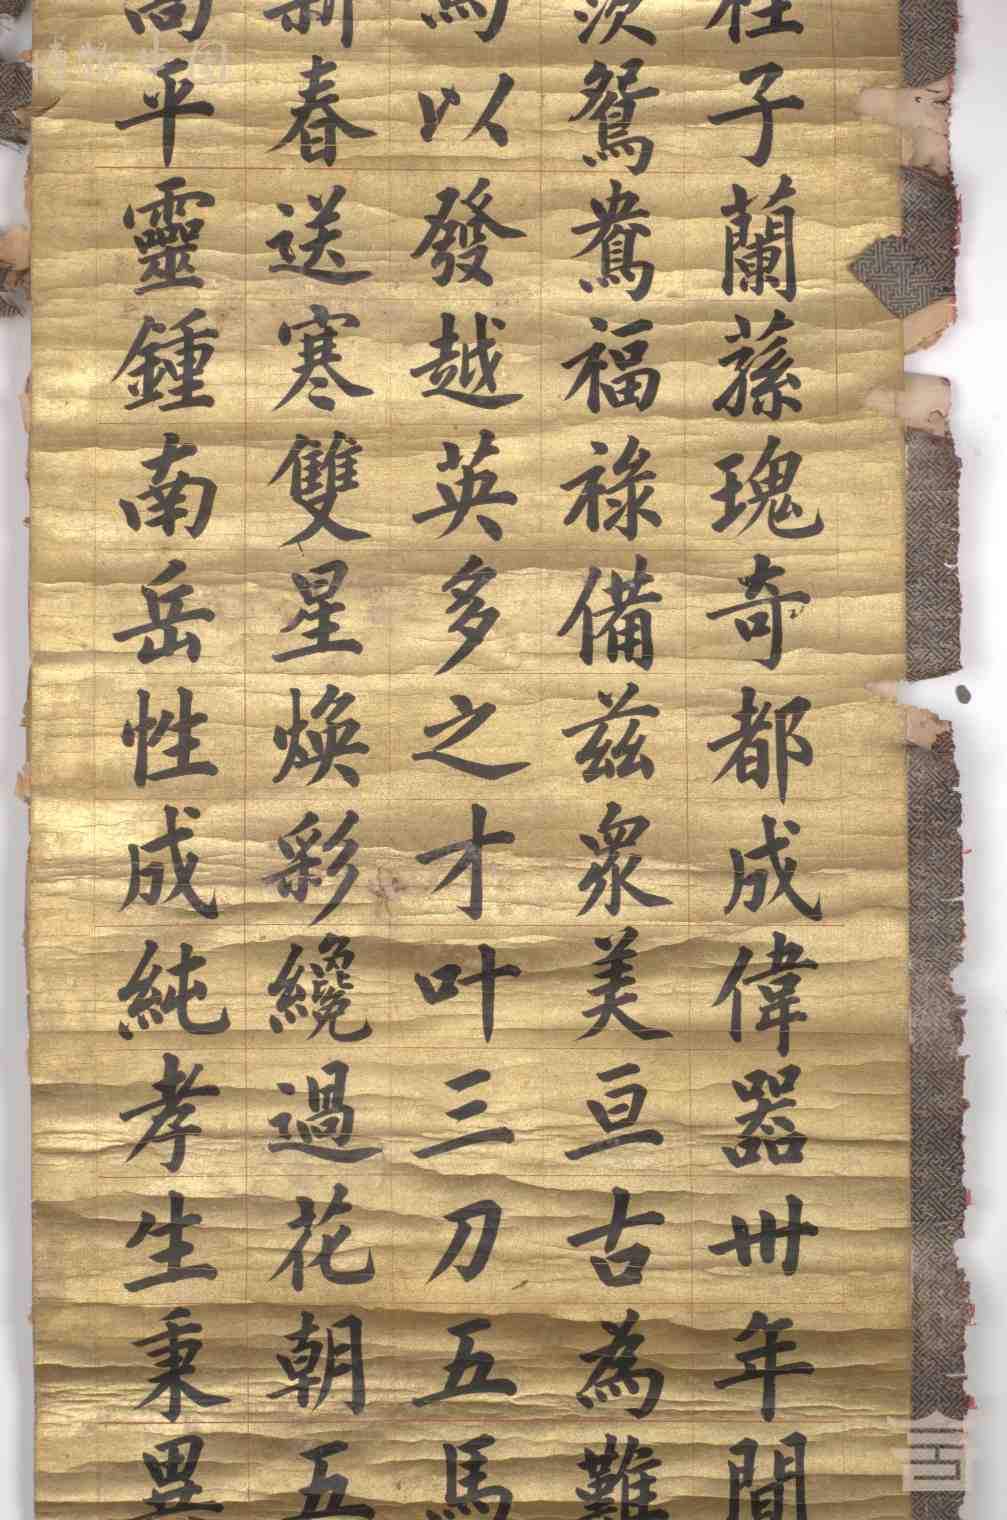 桂子蘭蓀瑰奇都成偉器卅年間
茨鴛鴦福祿備兹衆美亘古為難
馬以發越英多之才叶三刀五馬
新春送寒雙星煥彩纔過花朝五
高平靈鍾南岳性成純孝生秉異